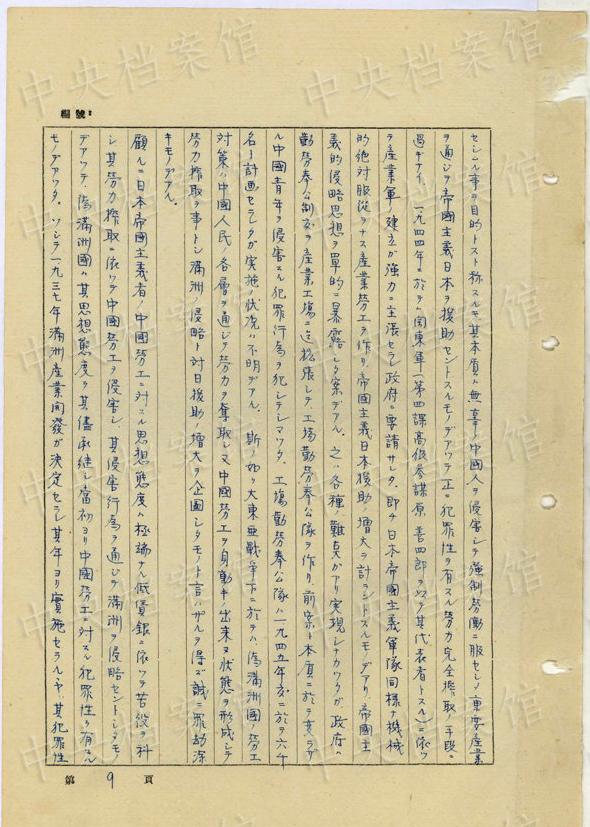 編號:
セシムル事ヲ目的トスト称スルモ其本質ハ無辜ノ中國人ヲ侵害シテ強制労働ニ服セシメ重要産業
ヲ通ジテ帝國主義日本ヲ援助セントスルモノデアツテ正ニ犯罪性ヲ有スル労力完全搾取ノ手段ニ
過ギナイ。一九四四年ニ於テハ関東軍(第四課高級参謀原善四郎ヲ以テ其代表者トスル)ニ依ツ
テ産業軍ノ建立ガ強力ニ主張セラレ政府ニ要請サレタ。即チ日本帝國主義軍隊同様ナ機械
的絶対服従ヲナス産業労工ヲ作リ帝國主義日本援助ノ増大ヲ計ラントスルモノデアリ帝國主
義的侵略思想ヲ單的ニ暴露シタ案デアル。之ハ各種ノ難点ガアリ実現シナカツタガ政府ハ
勤労奉公制度ヲ産業工場ニ迄拡張シテ工場勤労奉公隊ヲ作リ前案ト本質ニ於テ変ラザ
ル中國青年ヲ侵害スル犯罪行為ヲ犯シテシマツタ。工場勤労奉公隊ハ一九四五年度ニ於テ六千
名ト計画セラレタガ実施ノ状況ハ不明デアル。斯ノ如ク大東亜戦争下ニ於テハ偽満洲國ノ労工
対策ハ中國人民ノ各層ヲ通ジテ労力ヲ奪取シ又中國労工ヲ身動キ出来ヌ状態ヲ形成シテ
労力搾取ヲ事トシ満洲ノ侵略ト対日援助ノ増大ヲ企図シタモノト言ハザルヲ得ズ誠ニ罪劫深
キモノデアル。
顧ルニ日本帝國主義者ノ中國労工ニ対スル思想態度ハ極論ナル低賃銀ニ依ツテ苦役ヲ科
シ其労力搾取ニ依ツテ中國労工ヲ侵害シ、其侵害行為ヲ通ジテ満洲ヲ侵略セントシタモノ
デアツテ、偽満洲國ハ其思想態度ヲ其儘承継シ當初ヨリ中國労工ニ対スル犯罪性ヲ有スル
モノデアツタ。ソシテ一九三七年満洲産業開發ガ決定セラレ其年ヨリ實施セラルルヤ、其犯罪性
第 9 頁
中央档案馆